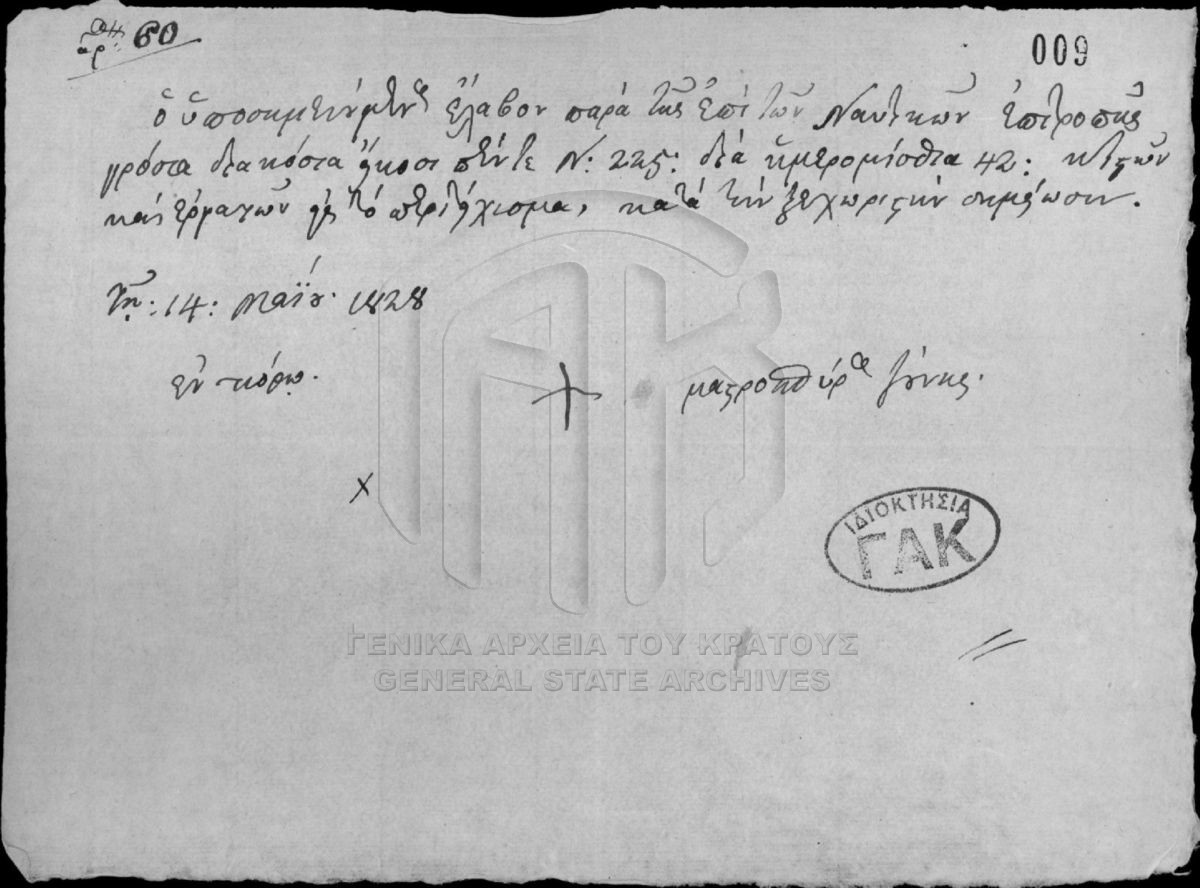 ἀρ: 60
009
ὁ ὑποσημεινόμενος ἔλαβον παρὰ τῆς Ἐπὶ τῶν Ναυτικῶν ἐπιτροπῆς
γρόσια διακόσια ἤκοσι πέντε Ν: 225: διὰ ἡμερομίσθια 42: κτιςῶν
καὶ ἐργατῶν εἰς τὸ περιτήχισμα, κατὰ τὴν ξεχωριςὴν σημείωσιν.
Τῇ: 14: Μαΐου 1828
ἐν πόρῳ.
μαςρο γιάνης.
ΙΔΙΟΚΤΗΣΙΑ
ΓΑΚ
ΓΕΝΙΚΑ ΑΡΧΕΙΑ ΤΟΥ ΚΡΑΤΟΥΣ
GENERAL STATE ARCHIVES